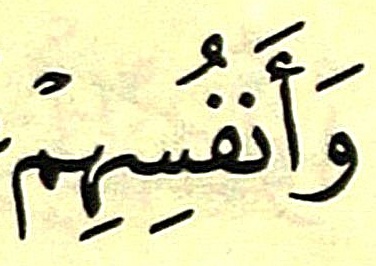 وَأَنفُسِهِمْ